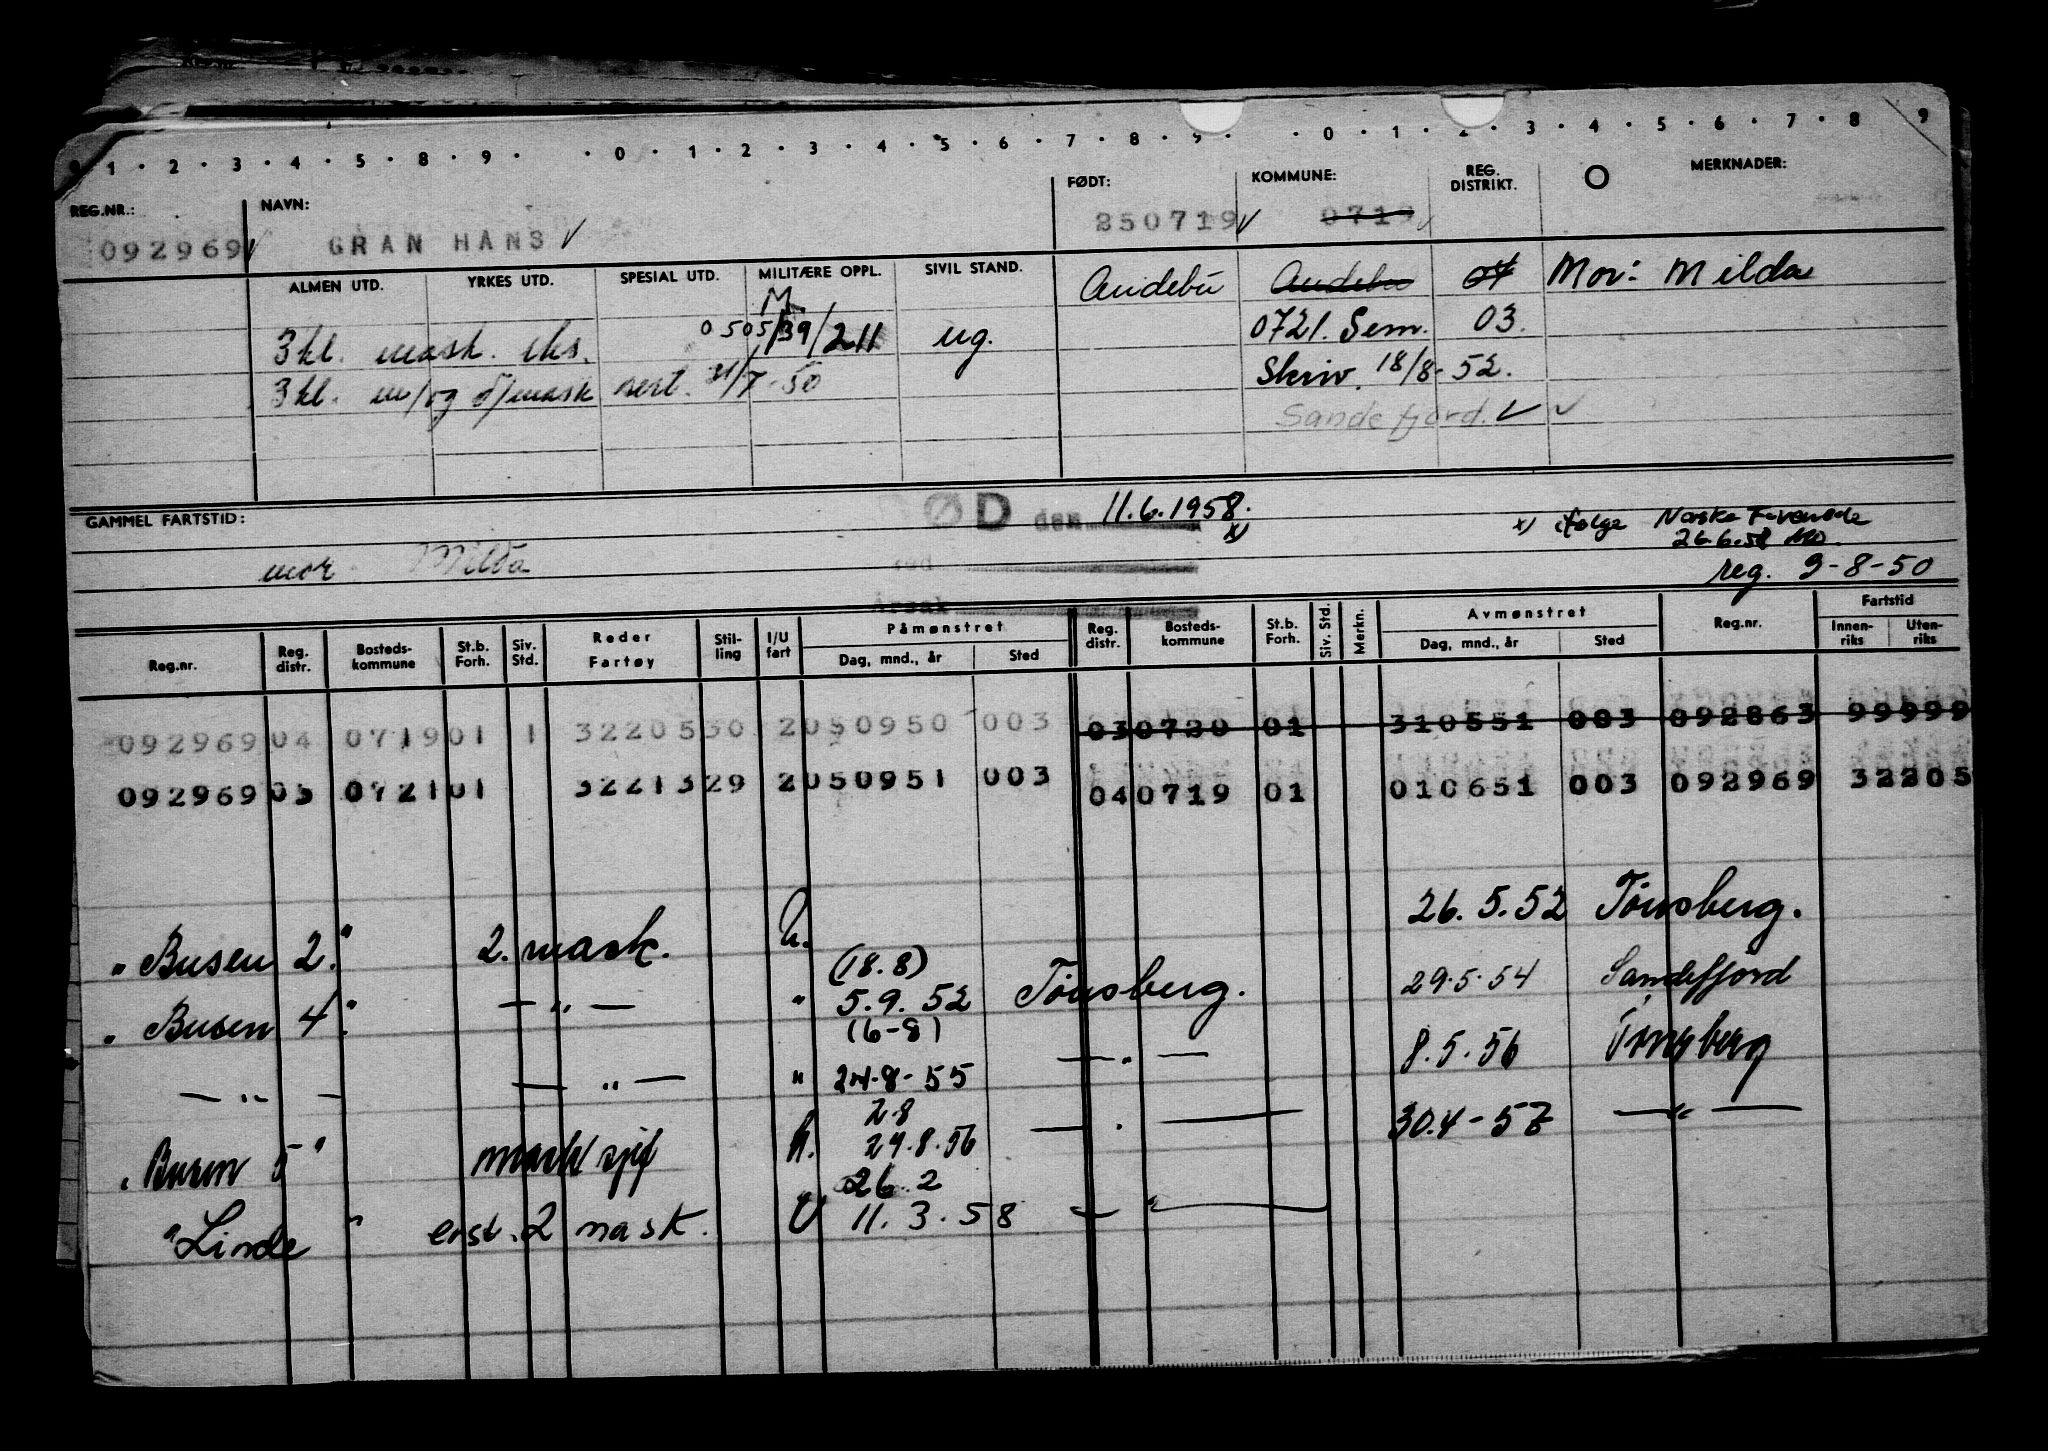 0 1 · 2 · 3 · 4 · 5 · 8 · 9 · · 0 · 1 · 2 · 3 · 4 · 5 · 6 · 7 · 8 · 9 · · 0 · 1 · 2 · 3 · 4 · 5 · 6 · 7 · 8 9
REG.NR.: NAVN: FØDT: KOMMUNE: REG. DISTRIKT. O MERKNADER:
092969 GRAN HANS 250719 0719
ALMEN UTD. YRKES UTD. SPESIAL UTD. MILITÆRE OPPL. SIVIL STAND. Andebu Andebu 04 Mor: Milda
M
3kl. mask. eks. 0505/39/211 ug. 0721. Sem. 03.
3kl. m/og d/mask sert. 31/7-50 Skriv. 18/8-52.
Sandefjord.
GAMMEL FARTSTID: ØD den 11.6.1958. x)
x) ifølge Norske
26.6.58
mor Milda
reg. 9-8-50
Årsak
Reg.nr. Reg. distr. Bosteds- kommune St.b. Forh. Siv. Std. Reder Fartøy Stil- ling I/U fart Påmønstret Dag, mnd., år Sted Reg. distr. Bosteds- kommune St.b. Forh. Siv. Std. Merkn. Avmønstret Dag, mnd., år Sted Reg.nr. Fartstid Innen- riks Uten- riks
092969 04 0719 01 1 32205 30 2 050950 003 03 0720 01 310551 003 092863 99999
092969 03 0721 01 32213 29 2 050951 003 04 0719 01 010651 003 092969 32205
"Busen 2." 2. mask. h. 26.5.52 Tønsberg.
(18.8)
"Busen 4." — " — " 5.9.52 Tønsberg. 29.5.54 Sandefjord
(6-8)
— " — — " — " 24-8-55 — " — 8.5.56 Tønsberg
2.8
"Busen 5" mask/sjef h. 29.8.56 — " — 30.4-57 — " —
26.2
"Linde" erst. 2 mask. U 11.3.58 — " —